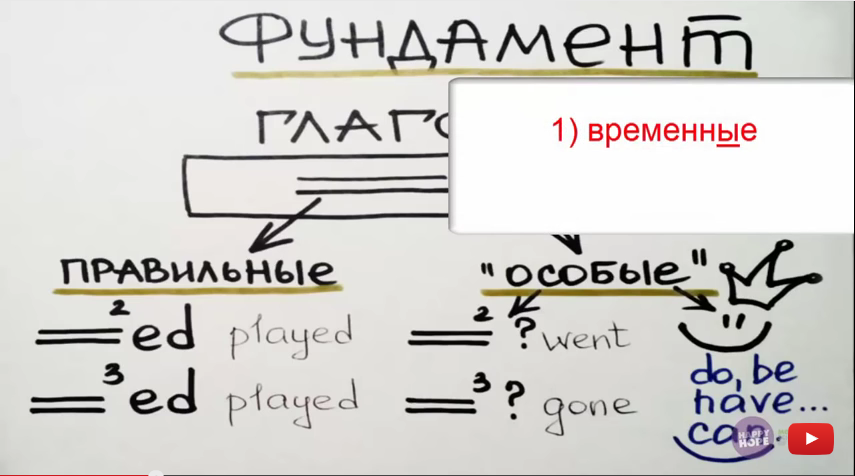 ФУНДАМЕНТ
ГЛАГО
1) временные
ПРАВИЛЬНЫЕ
"ОСОБЫЕ"
2 ed played
2 ? went
3 ed played
3 ? gone
do, be
have...
can.
HAPPY
HOPE